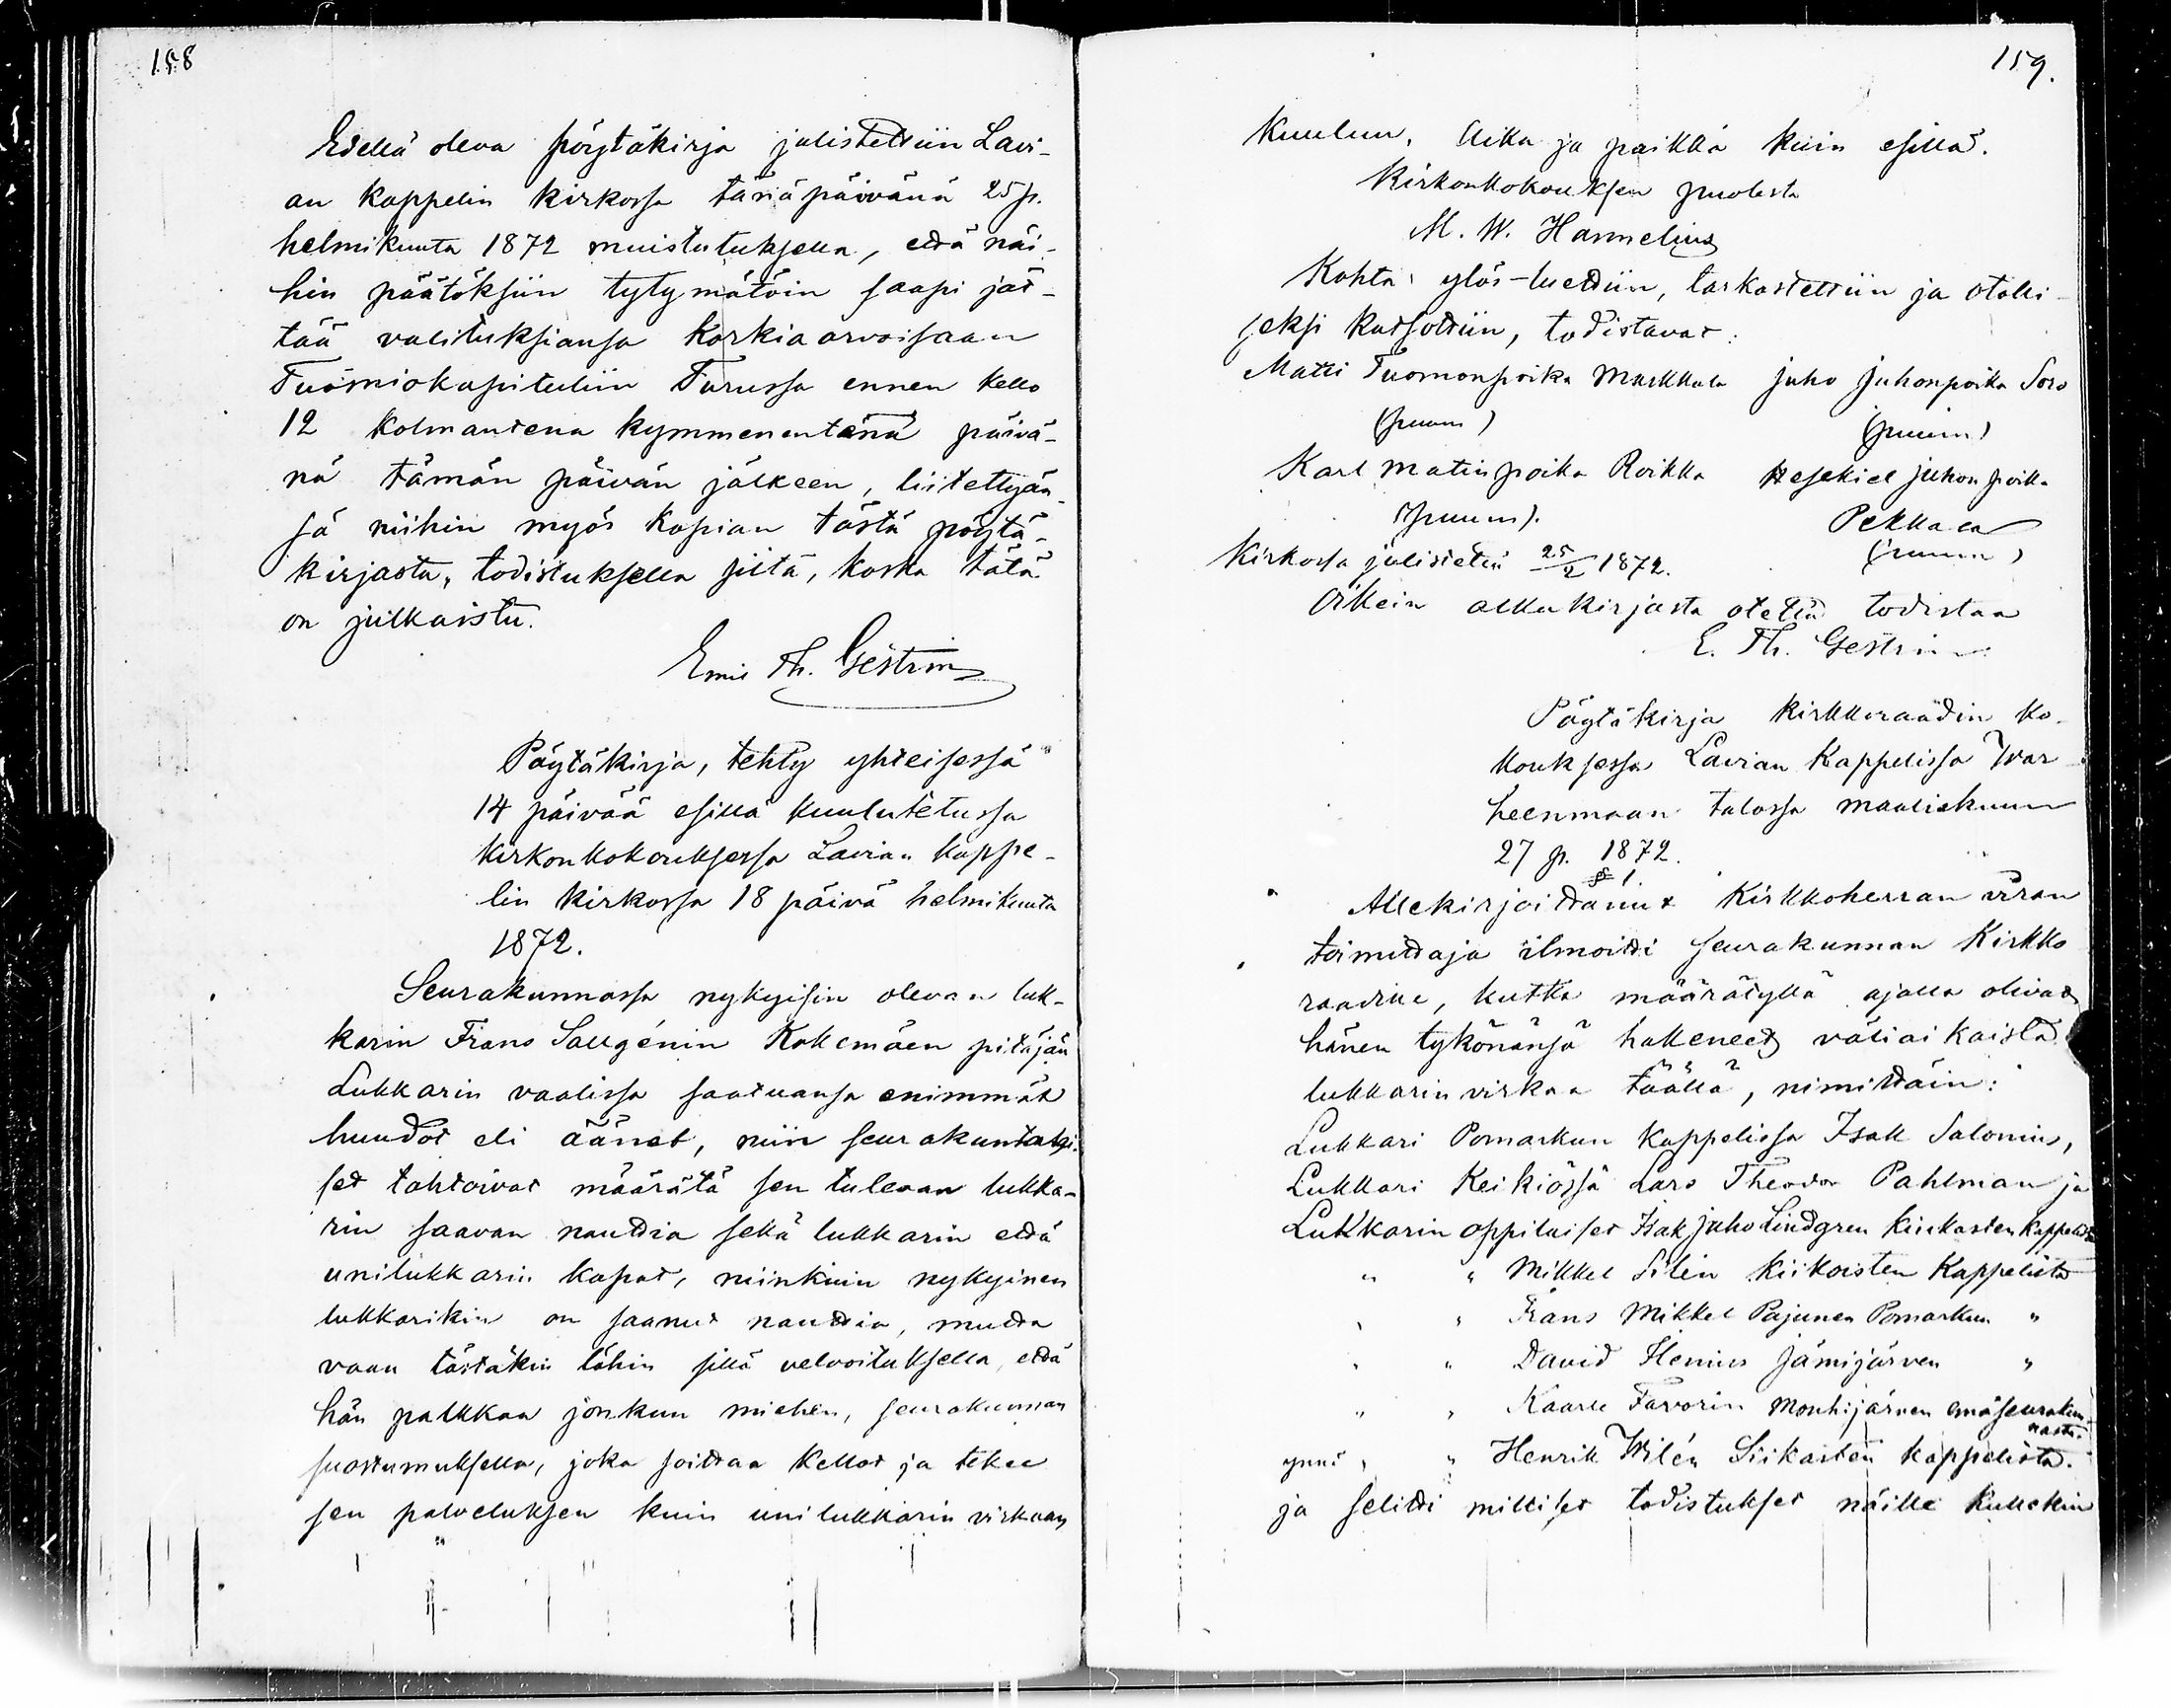 158
Edellä oleva pöytäkirja julistettiin Lavi-
an kappelin kirkossa tänäpäivänä 25 p.
helmikuuta 1872 muistutuksella, että näi-
hin päätöksiin tytymätöin saapi jät-
tää valituksiansa Korkiaarvoisaan
Tuomiokapituliin Turussa ennen kello
12 kolmantena kymmenentenä päivä-
nä tämän päivän jälkeen, liitettyän-
sä niihin myös kopian tästä pöytä-
kirjasta, todistuksella siitä, koska tätä
on julkaistu.
Emil Th. Gestrin
Pöytäkirja, tehty yhteisessä
14 päivää esillä kuulutetussa
kirkonkokouksessa Lavian kappe-
lin kirkossa 18 päivä helmikuuta
1872.
Seurakunnassa nykyisin olevan luk-
karin Frans Sallgénin Kokemäen pitäjän
Lukkarin vaalissa saatuansa enimmät
huudot eli äänet, niin seurakuntalai-
set tahtoivat määrätä sen tulevan lukka-
rin saavan nauttia sekä lukkarin että
unilukkarin kapat, niinkuin nykyinen
lukkarikin on saanut nauttia, mutta
vaan tästäkin lähin sillä velvoituksella, että
hän palkkaa jonkun miehen, seurakunnan
suostumuksella, joka soittaa kellot ja tekee
sen palveluksen kuin unilukkarin virkaan
159.
kuuluu. Aika ja paikka kuin esillä.
Kirkonkokouksen puolesta
M. W. Hannelius
Kohta ylös-luettiin, tarkastettiin ja otolli-
seksi katsottiin, todistavat:
Matti Tuomonpoika Markkula Juho Juhonpoika Soro
(puum) (puum)
Karl Matinpoika Roikka Hesekiel Juhonpoika
(puum). Pekkala
(puum)
Kirkossa julistetu 25/2 1872.
Oikein alkukirjasta otetuu todistaa
E. Th. Gestrin
Pöytäkirja kirkkoraadin ko-
kouksessa Lavian Kappelissa Ivar
heenmaan talossa maaliskuun
27 p. 1872.
§ 1.
Allekirjoittanut Kirkkoherran viran
toimittaja ilmoitti seurakunnan Kirkko
raadille, kutka määrätyllä ajalla olivat
hänen tykönänsä hakeneet väliaikaista
lukkarin virkaa täällä, nimittäin:
Lukkari Pomarkun kappelissa Isak Salonius,
Lukkari Keikiössä Lars Theodor Pahlman ja
Lukkarin oppilaiset Isak Juho Lindgren Kiikoisten Kappelista
" " Mikkel Silén Kiikoisten Kappelista
" " Frans Mikkel Pajunen Pomarkun "
" " David Henius Jämijärven "
" " Kaarle Favorin Mouhijärven emäseurakun-
nasta.
ynnä " " Henrik Wilén Siikaisten kappelista.
ja selitti milliset todistukset näille kullekin